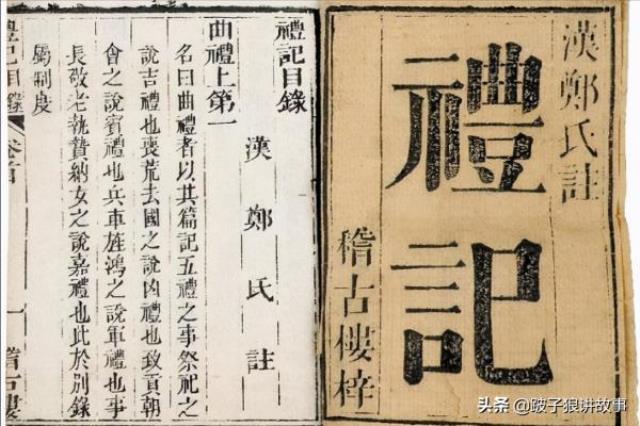 漢鄭氏註
禮記
稽古樓梓
禮記目錄
漢鄭氏註
曲禮上第一
名曰曲禮者以其篇記五禮之事祭祀之
說吉禮也喪荒去國之說凶禮也致貢朝
會之說賓禮也兵車旌鴻之說軍禮也事
長敬老執贄納女之說嘉禮也此於別錄
屬制度
目錄 卷首 一 古樓
头条 @跛子狼讲故事